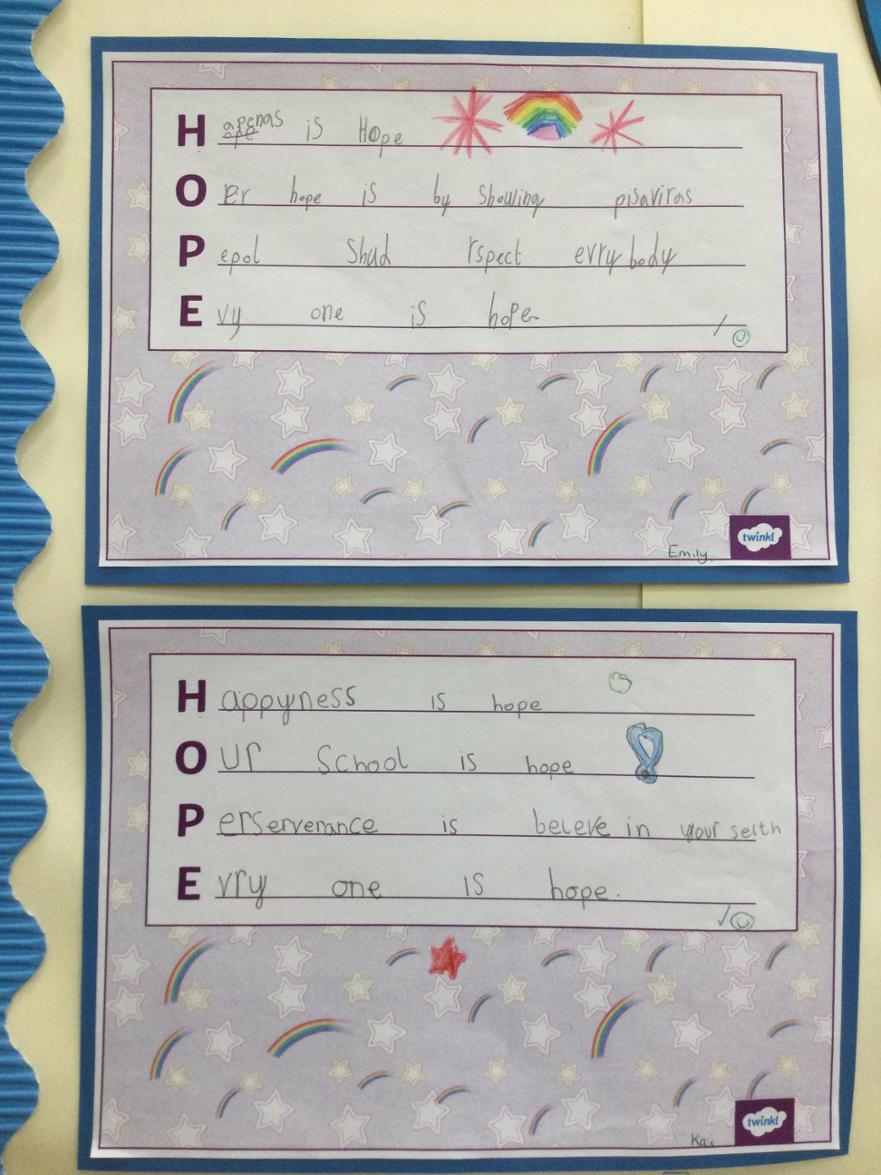 Hapenas is Hope
Oer hope is by showing pisaviras
Pepol Shud rspect evrybody
Evy one is hope
Emily
twinkl
Happyness is hope
Our School is hope
Perserverance is beleve in your selth
Evry one is hope.
Kai
twinkl